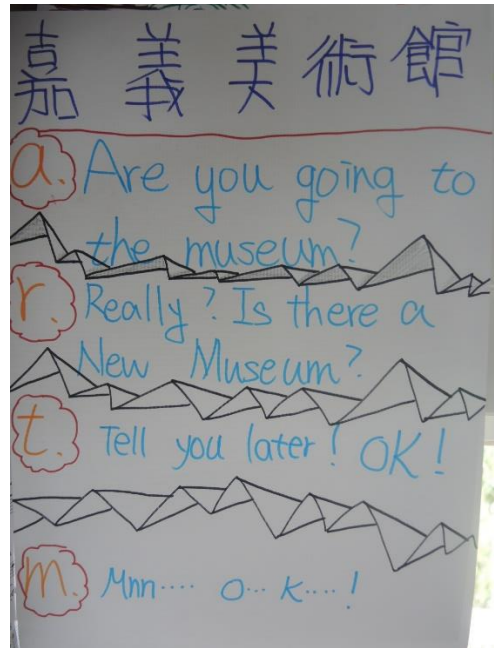 嘉義美術館
a. Are you going to
the museum?
r. Really? Is there a
New Museum?
t. Tell you later! OK!
m. Mnn.... O... K....!